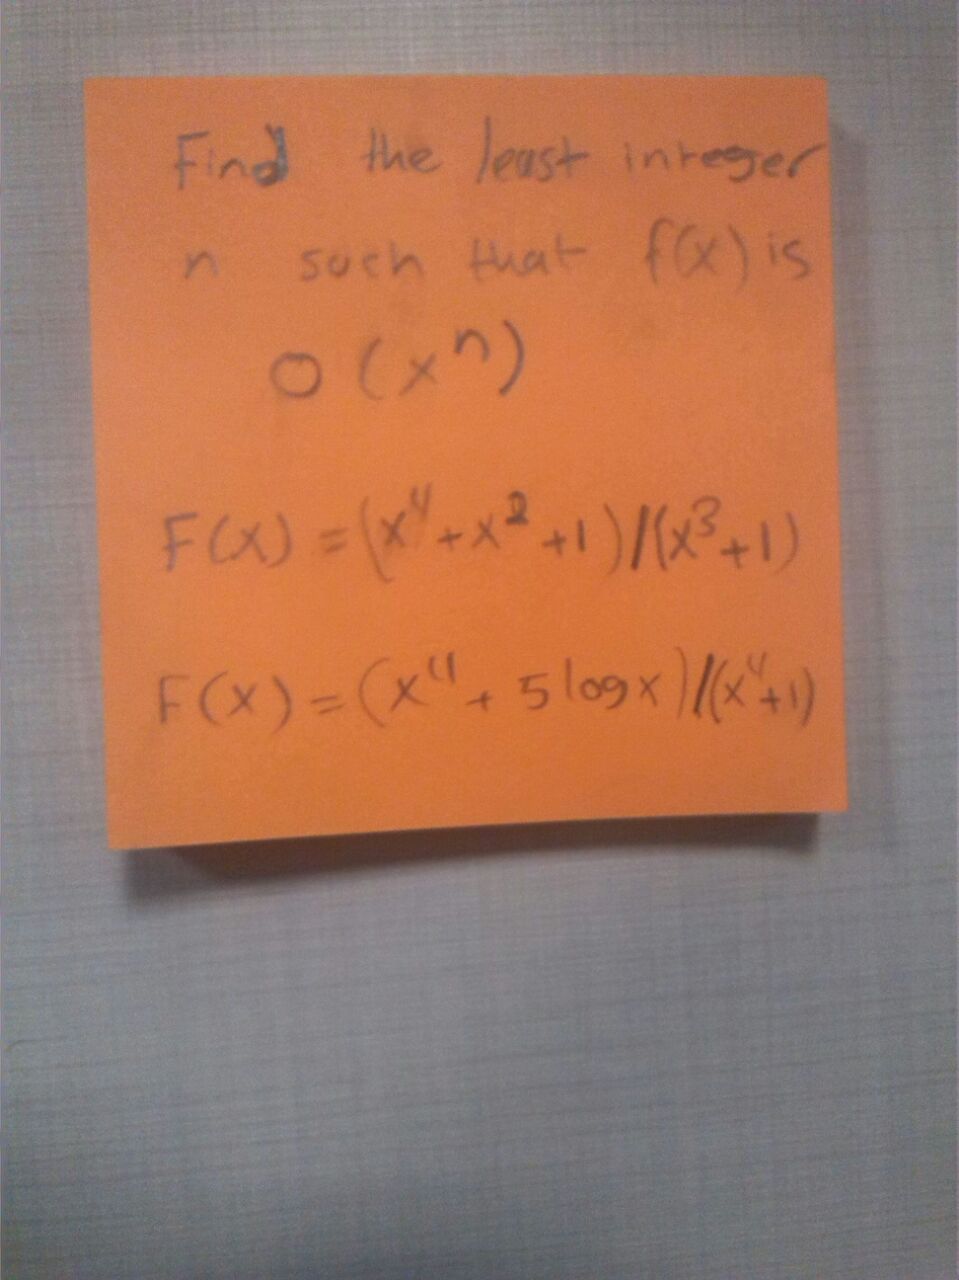 Find the least integer
n such that f(x) is
O(x^n)
F(x) = (x^4 + x^2 + 1)/(x^3 + 1)
F(x) = (x^4 + 5 log x)/(x^4 + 1)